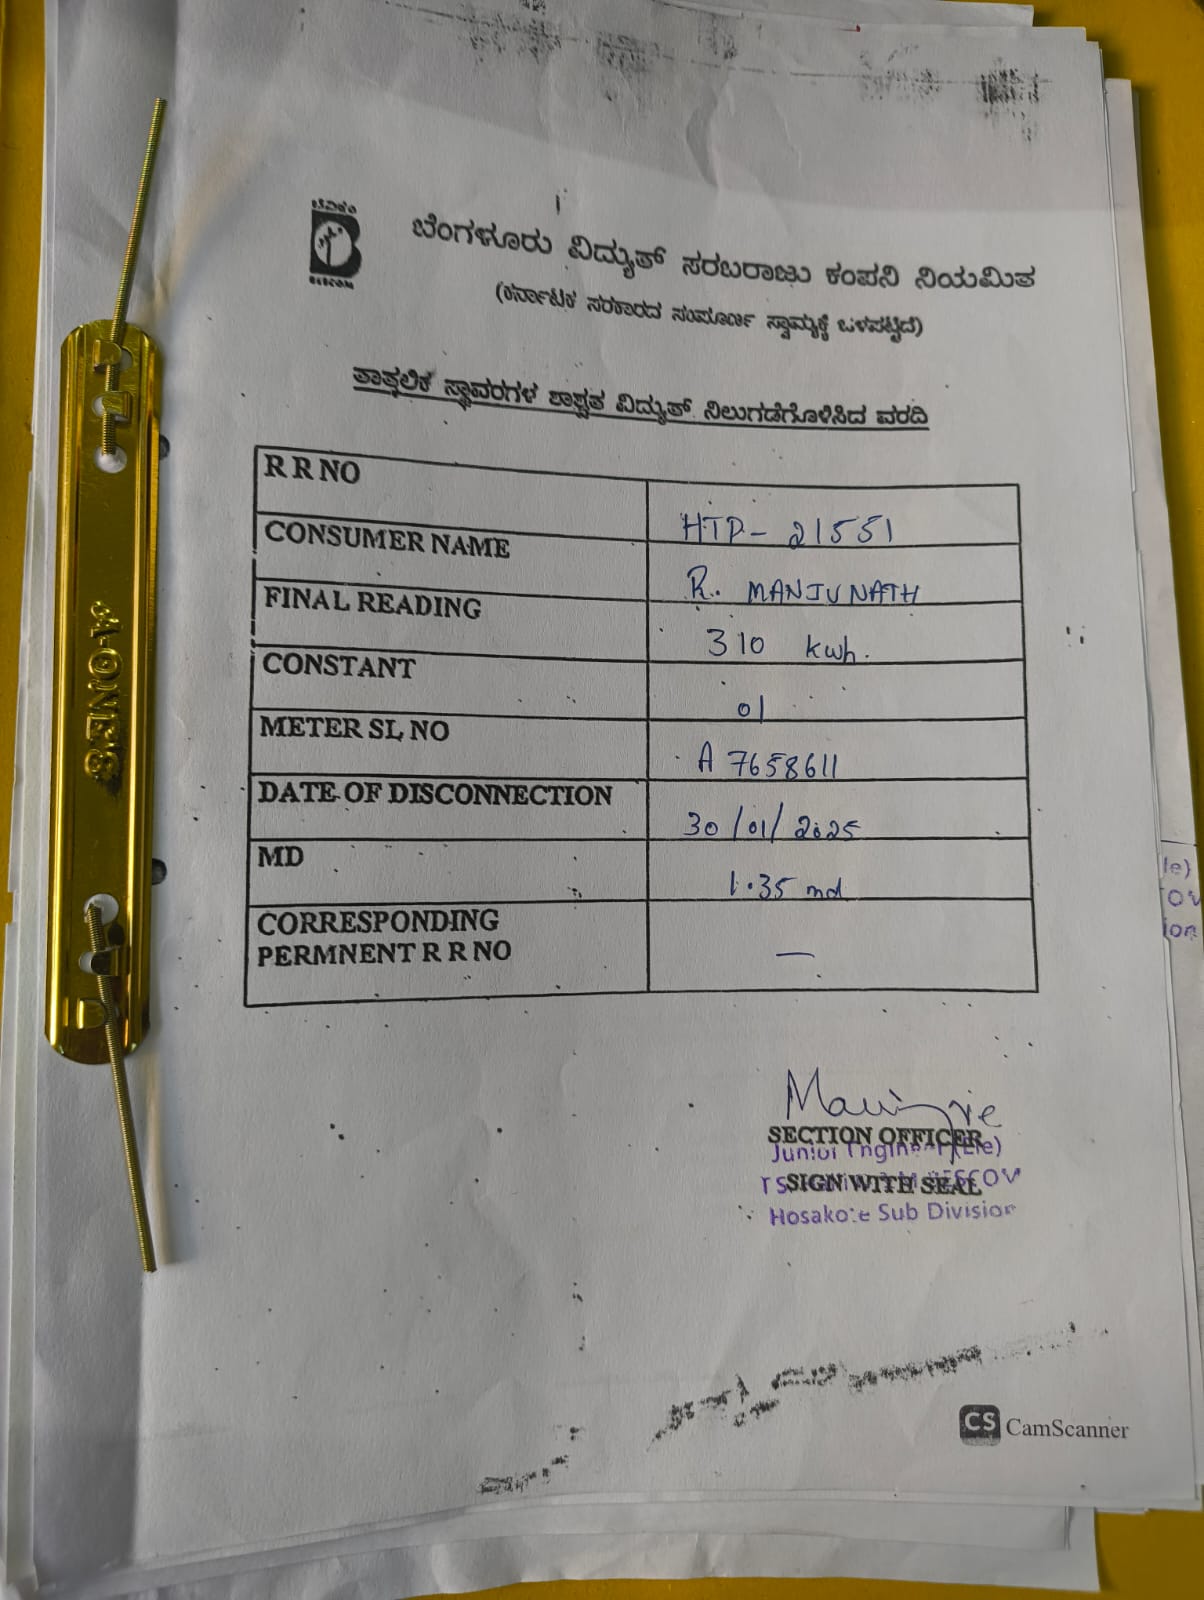 ಬೆವಿಕಂ
BESCOM
ಬೆಂಗಳೂರು ವಿದ್ಯುತ್ ಸರಬರಾಜು ಕಂಪನಿ ನಿಯಮಿತ
(ಕರ್ನಾಟಕ ಸರಕಾರದ ಸಂಪೂರ್ಣ ಸ್ವಾಮ್ಯಕ್ಕೆ ಒಳಪಟ್ಟಿದೆ)
ತಾತ್ಕಲಿಕ ಸ್ಥಾವರಗಳ ಶಾಶ್ವತ ವಿದ್ಯುತ್ ನಿಲುಗಡೆಗೊಳಿಸಿದ ವರದಿ
R R NO HTP- 21551
CONSUMER NAME R. MANJUNATH
FINAL READING 310 kwh.
CONSTANT 01
METER SL NO A 7658611
DATE OF DISCONNECTION 30/01/2025
MD 1.35 md
CORRESPONDING
PERMNENT R R NO —
SECTION OFFICER
Junior Engineer (Ele)
SIGN WITH SEAL
Hosakote Sub Division
A-ONE'S
le)
ion
CS CamScanner